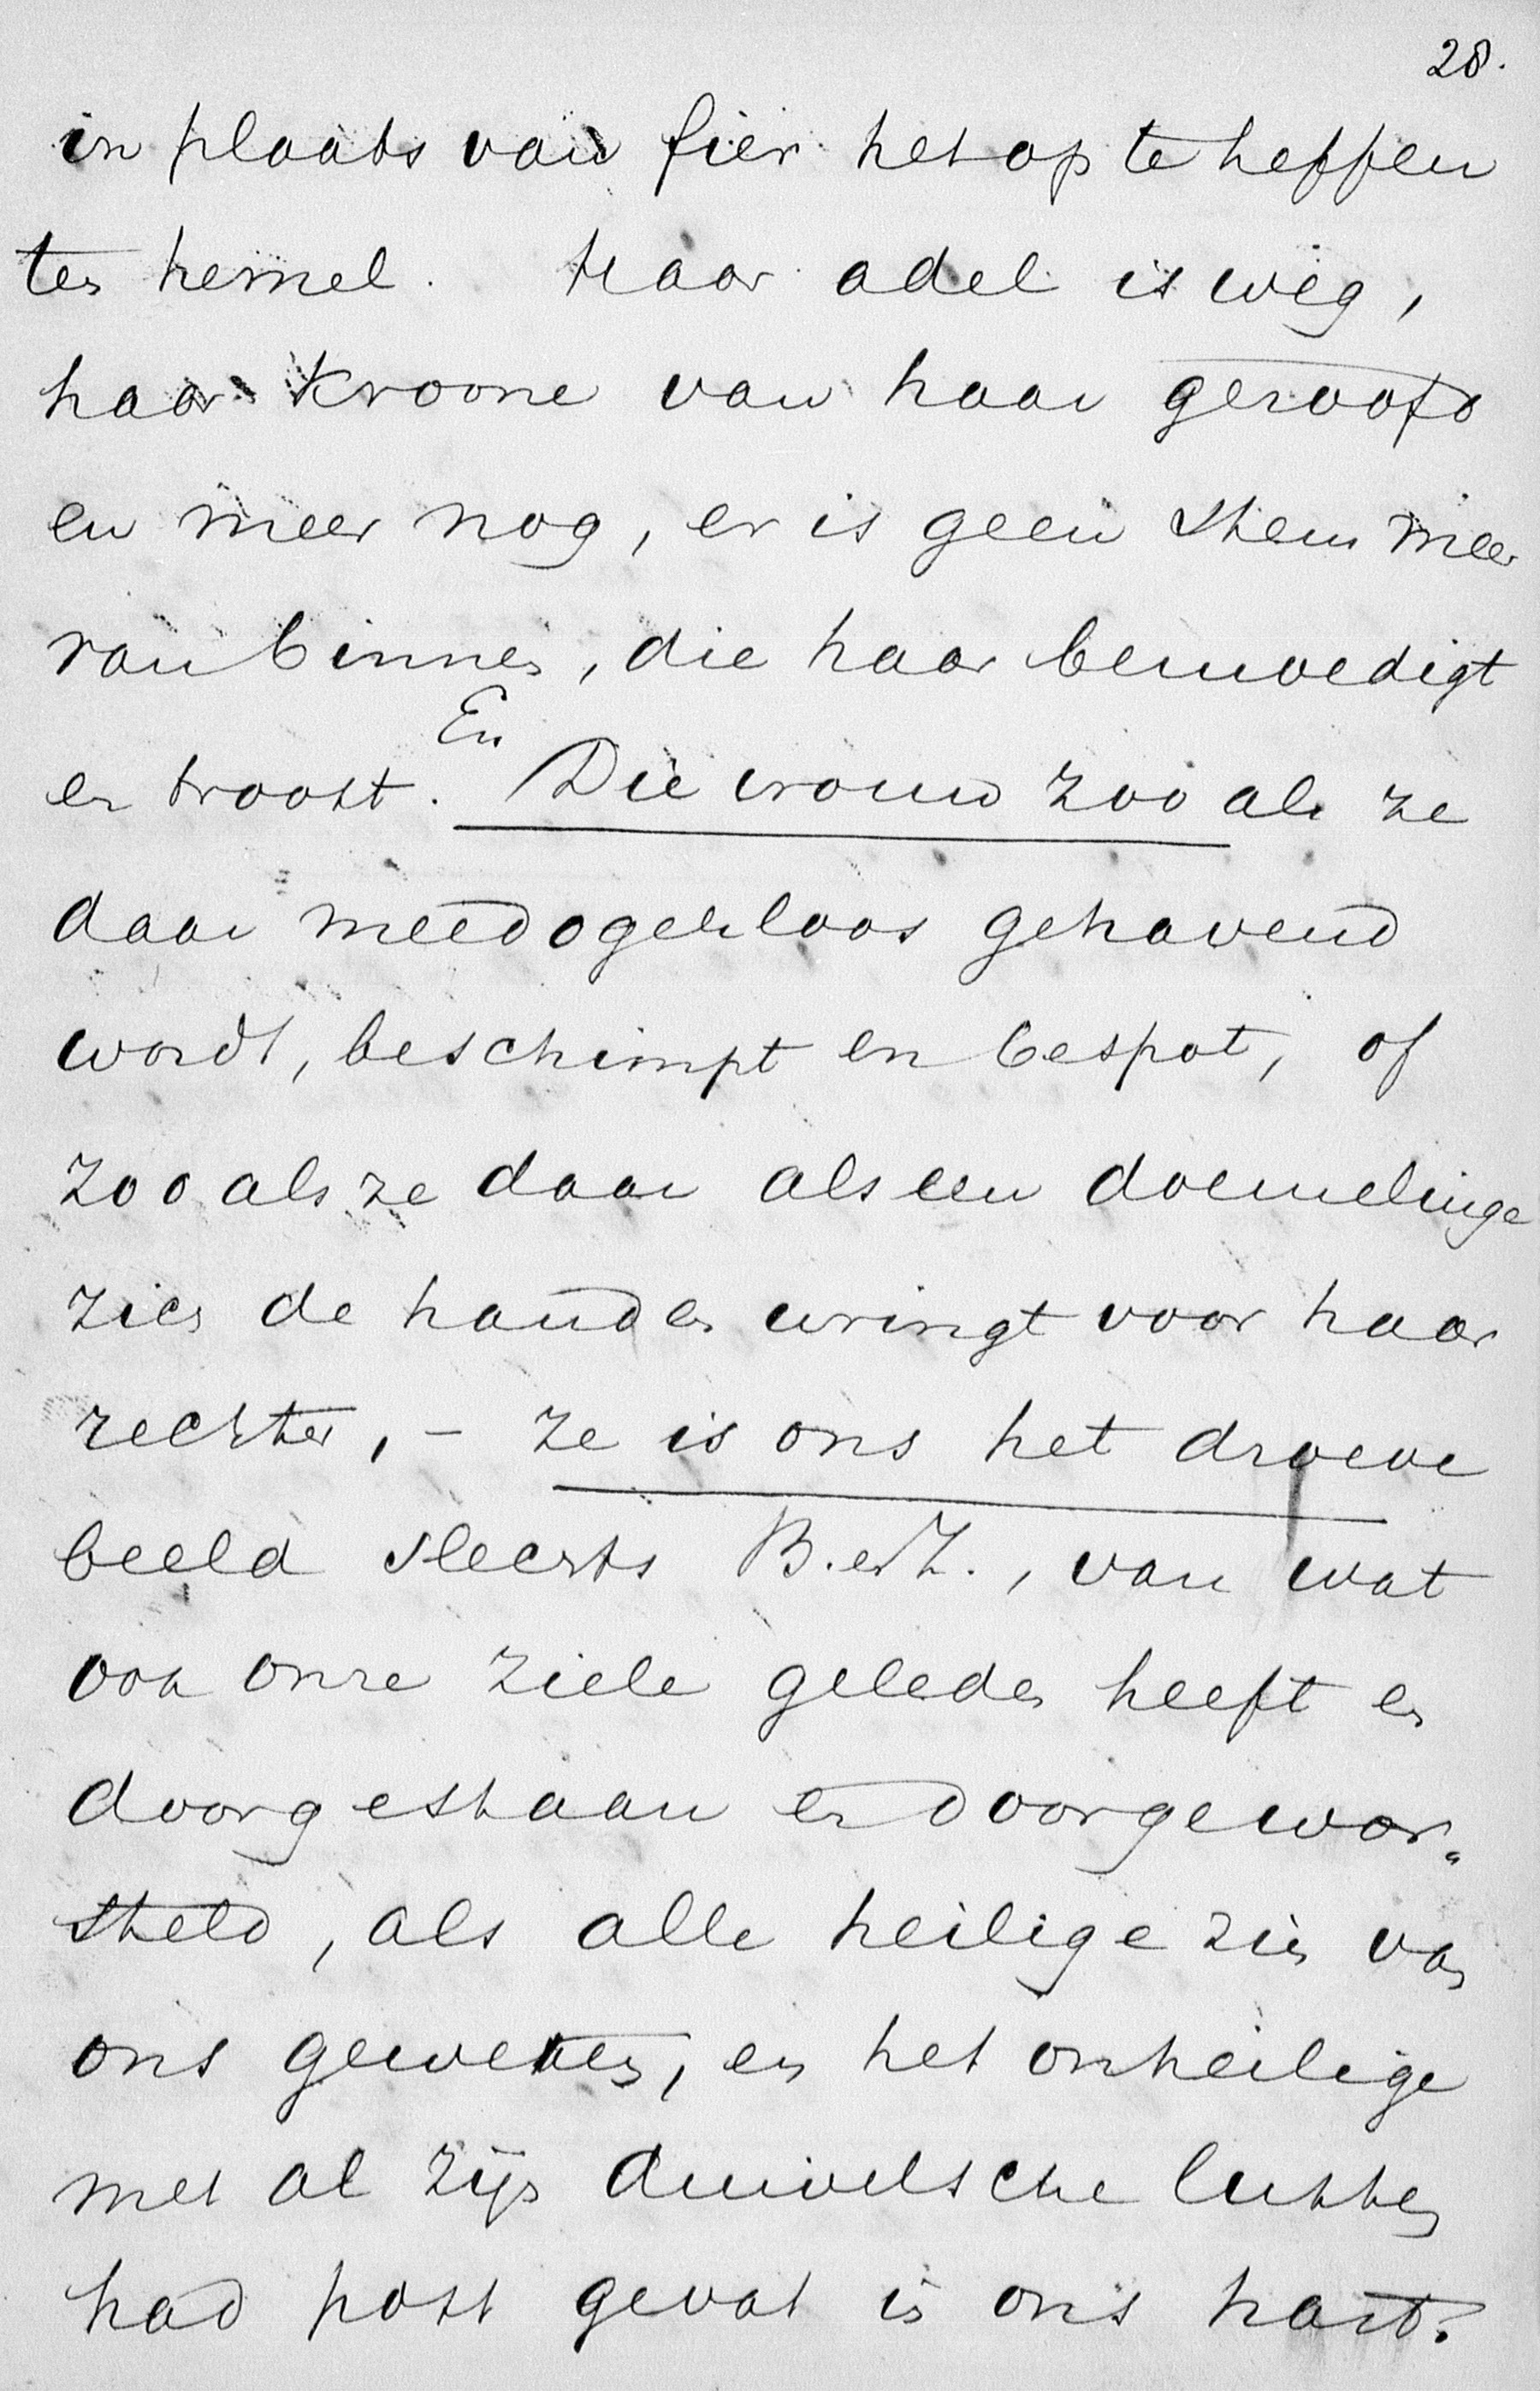 28.
in plaats van fier het op te heffen
ten hemel. Haar adel is weg,
haar kroone van haar geroofd
en meer nog, er is geen stem meer
van binnen, die haar bemoedigt
en troost. En Die vrouw zooals ze
daar meedogenloos gehavend
wordt, beschimpt en bespot, of
zooals ze daar als een doemelinge
zien de handen wringt voor haar
rechter, – ze is ons het droeve
beeld slechts B. en Z., van wat
ook onze ziele geleden heeft en
doorgestaan en doorgewor„
steld, als alle heilige zin van
ons geweken, en het onheilige
met al zijn duivelsche lusten
had post gevat in ons hart.